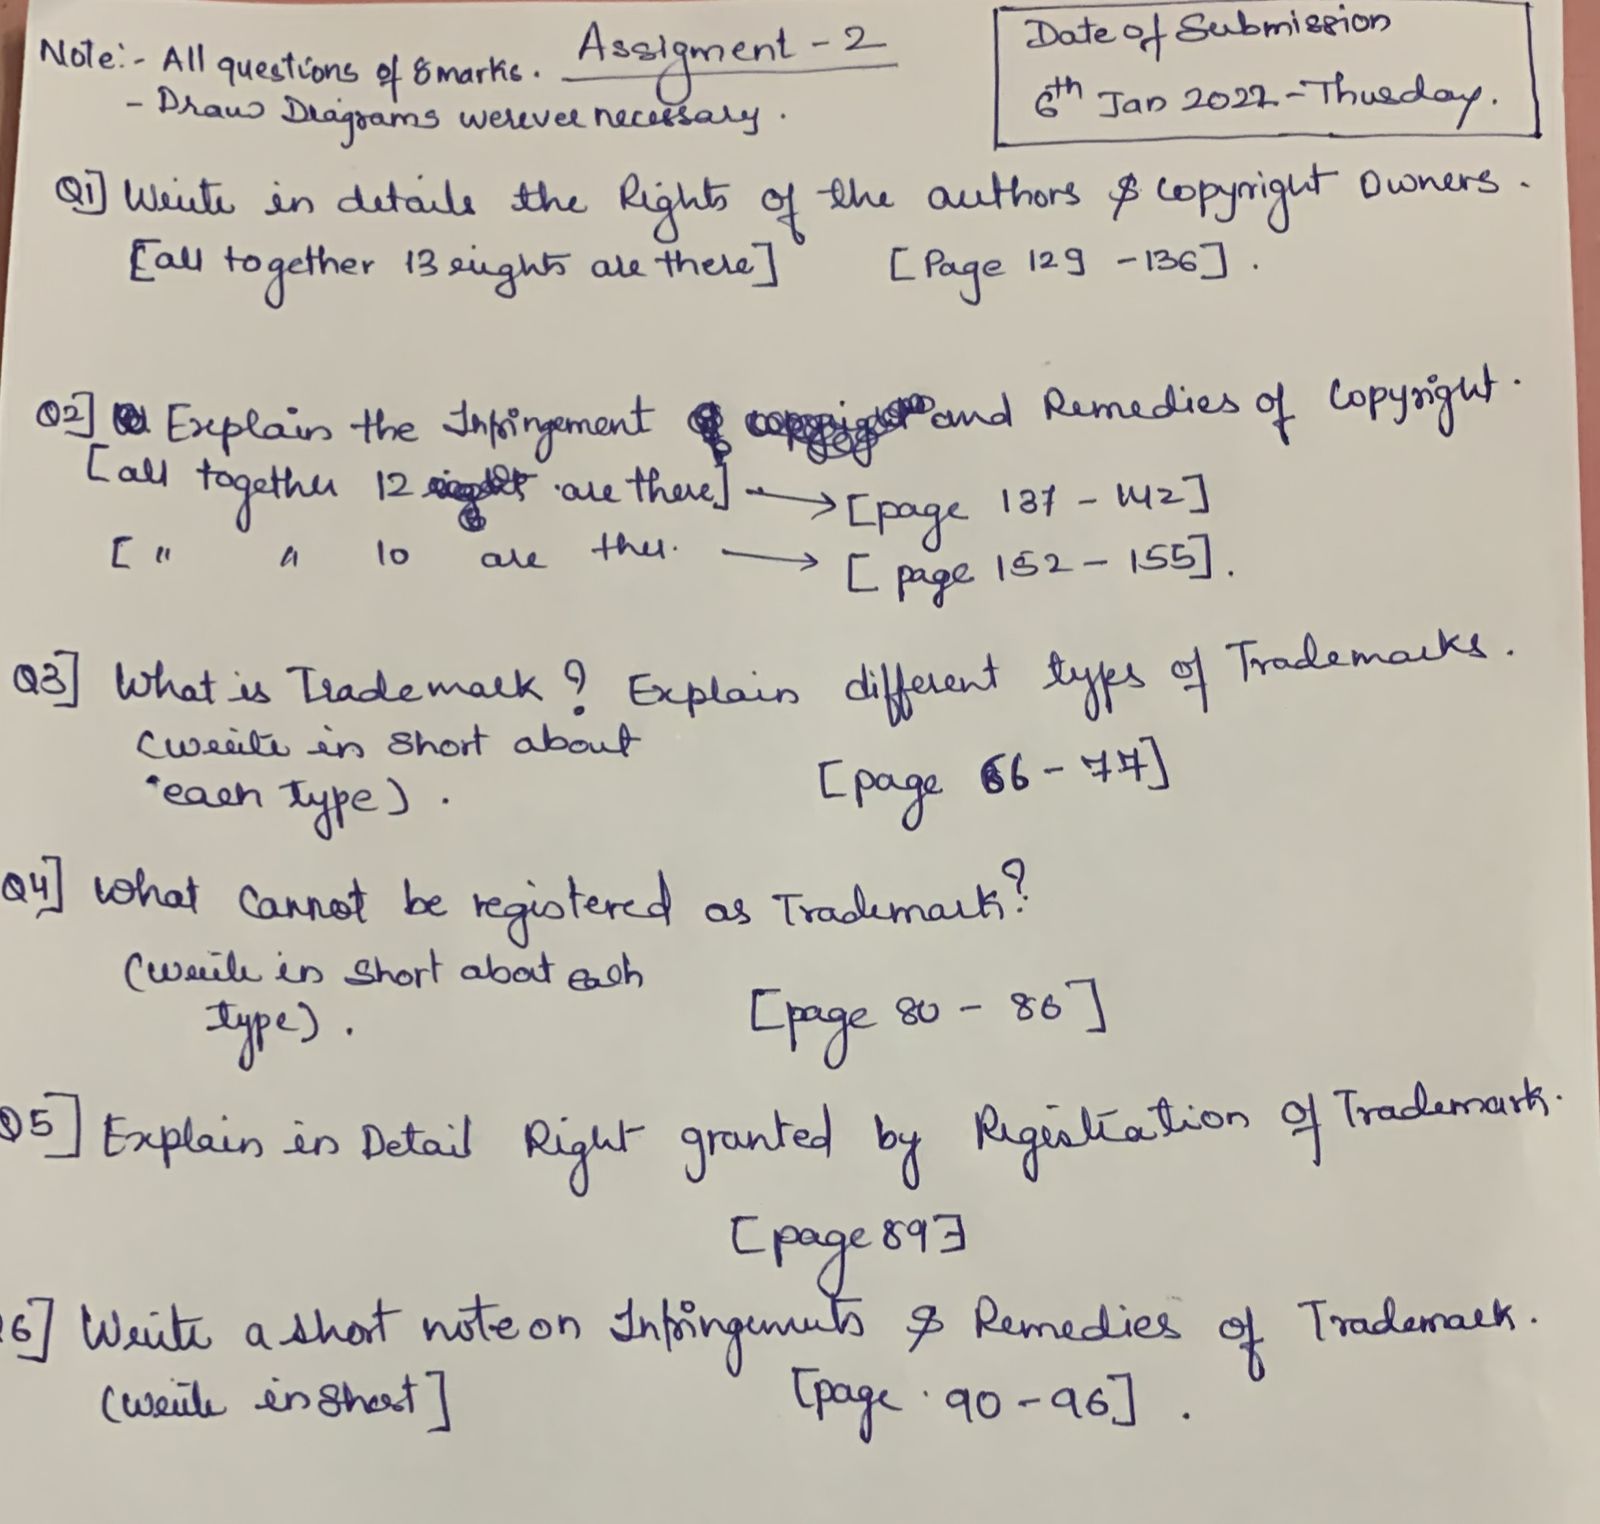 Note:- All questions of 8 marks. Assigment - 2
- Draw Diagrams werever necessary.
Date of Submission
6th Jan 2022 - Thursday.
Q1] Write in details the Rights of the authors & copyright Owners.
[all together 13 rights are there] [Page 129 - 136].
Q2] Explain the Infringement and Remedies of Copyright.
[all together 12 are there] → [page 137 - 142]
[ " " 10 are ther. → [page 152 - 155].
Q3] What is Trademark? Explain different types of Trademarks.
(write in short about
each type). [page 66 - 77]
Q4] What Cannot be registered as Trademark?
(write in short abot each
type). [page 80 - 86]
Q5] Explain in Detail Right granted by Registration of Trademark.
[page 89]
6] Write a short note on Infringements & Remedies of Trademark.
(write in short] [page 90 - 96].